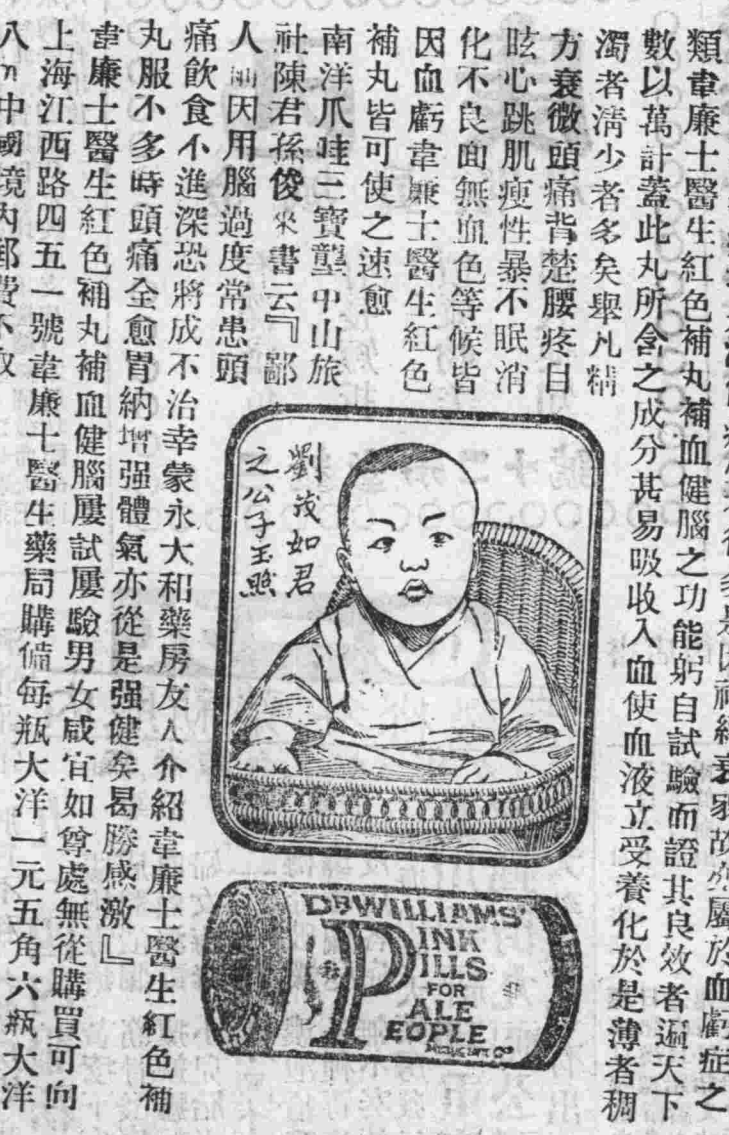 衰弱故亦屬於血虧症之
類韋廉士醫生紅色補丸補血健腦之功能躬自試驗而證其良效者遍天下
數以萬計蓋此丸所含之成分甚易吸收入血使血液立受養化於是薄者稠
濁者清少者多矣舉凡精
方衰微頭痛背楚腰疼目
眩心跳肌瘦性暴不眠消
化不良面無血色等候皆
因血虧韋廉士醫生紅色
補丸皆可使之速愈
南洋爪哇三寶壟中山旅
社陳君孫俊來書云『鄙
人因用腦過度常患頭
痛飲食小進深恐將成不治幸蒙永大和藥房友人介紹韋廉士醫生紅色補
丸服不多時頭痛全愈胃納增强體氣亦從是强健矣曷勝感激』
韋廉士醫生紅色補丸補血健腦屢試屢驗男女咸宜如尊處無從購買可向
上海江西路四五一號韋廉士醫生藥局購備每瓶大洋一元五角六瓶大洋
八中國境內郵費不收
劉茂如君
之公子玉照
DR WILLIAMS'
PINK
PILLS
FOR
PALE
PEOPLE